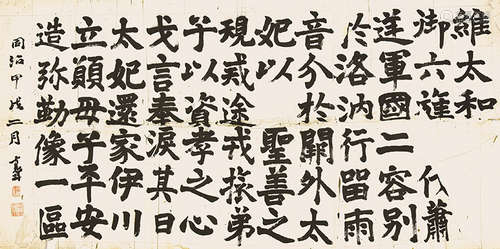 維太和
御六旌 伐蕭
逆軍國二容別
於洛汭行留兩
音分於關外太
妃以 聖善之
規戒途戎旅弟
子以資孝之心
戈言奉淚其日
太妃還家伊川
立願母子平安
造弥勒像一區
同治甲戌二月